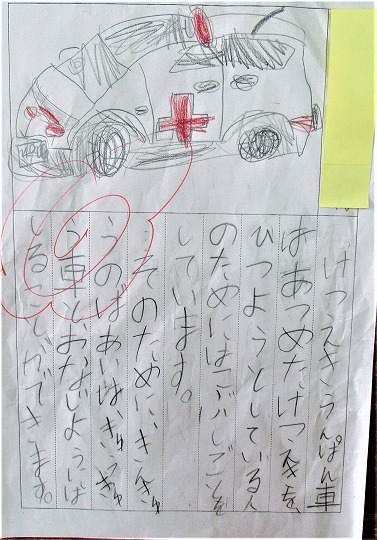 けつえきうんぱん車
はあつめたけつえきを、
ひつようとしている人
のためにはこぶしごとを
しています。
そのためにきんきゅ
うのばあいはきゅうきゅ
う車とおなじようには
しることができます。